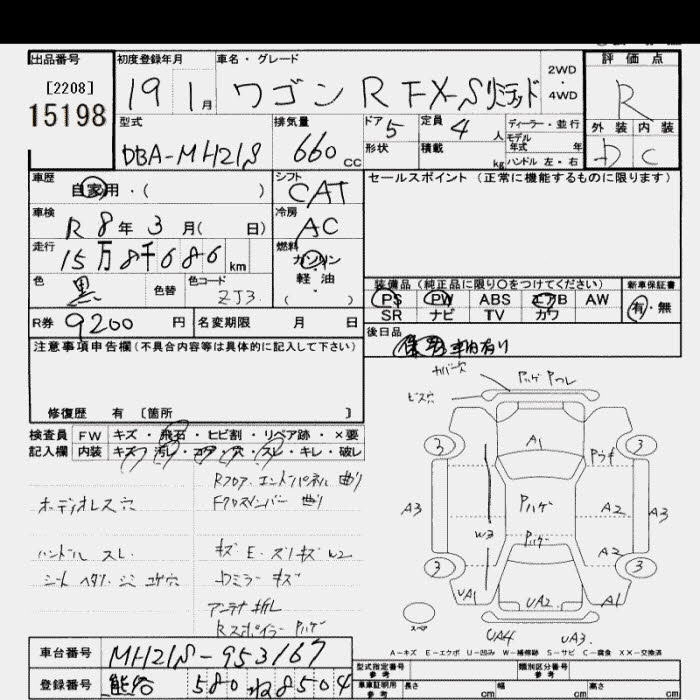 出品番号
[2208]
15198
初度登録年月
19 1月
車名・グレード
ワゴン R FX-Sリミテッド
2WD
・
4WD
評価点
R
型式
DBA-MH21S
排気量
660 cc
ドア 5
定員 4 人
ディーラー・並行
モデル年式 年
形状
積載 kg
ハンドル 左・右
外装 内装
D C
車歴
自家用・( )
シフト
CAT
セールスポイント (正常に機能するものに限ります)
車検
R 8年 3月( 日)
冷房
AC
走行
15万8千686 km
燃料
ガソリン
軽油
・
( )
色
黒
色替
色コード
ZJ3
装備品 (純正品に限り○をつけてください)
新車保証書
PS PW ABS エアB AW
SR ナビ TV カワ
有・無
R券 9200 円
名変期限 月 日
後日品
車内有り
注意事項申告欄 (不具合内容等は具体的に記入して下さい)
修復歴 有 〔箇所 〕
検査員記入欄
FW キズ・飛石・ヒビ割・リペア跡・×要
内装 キズ・汚レ・コゲ・穴・スレ・キレ・破レ
カバー欠
Pハゲ Pワレ
ビス穴
Rフロア エンドパネル 曲り
Fクロスメンバー 曲り
ボディオレス穴
ハンドル スレ
シート ヘタリ シミ コゲ穴
キズ E・スリキズ W2
Dミラー キズ
アンテナ 折レ
Rスポイラー Pハゲ
A1
3 3
Pウキ
A3
Pハゲ
A2
A3
W3
Pハゲ
A2
3 3
UA1
UA2
A1
スペア
UA4 UA3
A-キズ E-エクボ U-凹み W-補修跡 S-サビ C-腐食 XX-交換済
車台番号
MH21S-953167
型式指定番号 参考
類別区分番号 参考
登録番号
熊谷 580 ね8504
車庫証明用 参考
長さ cm
幅 cm
高さ cm